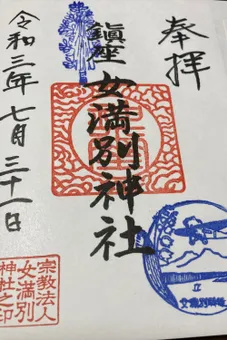 奉拝
鎮座
女満別神社
令和三年七月三十一日
宗教法人
女満別
神社之印